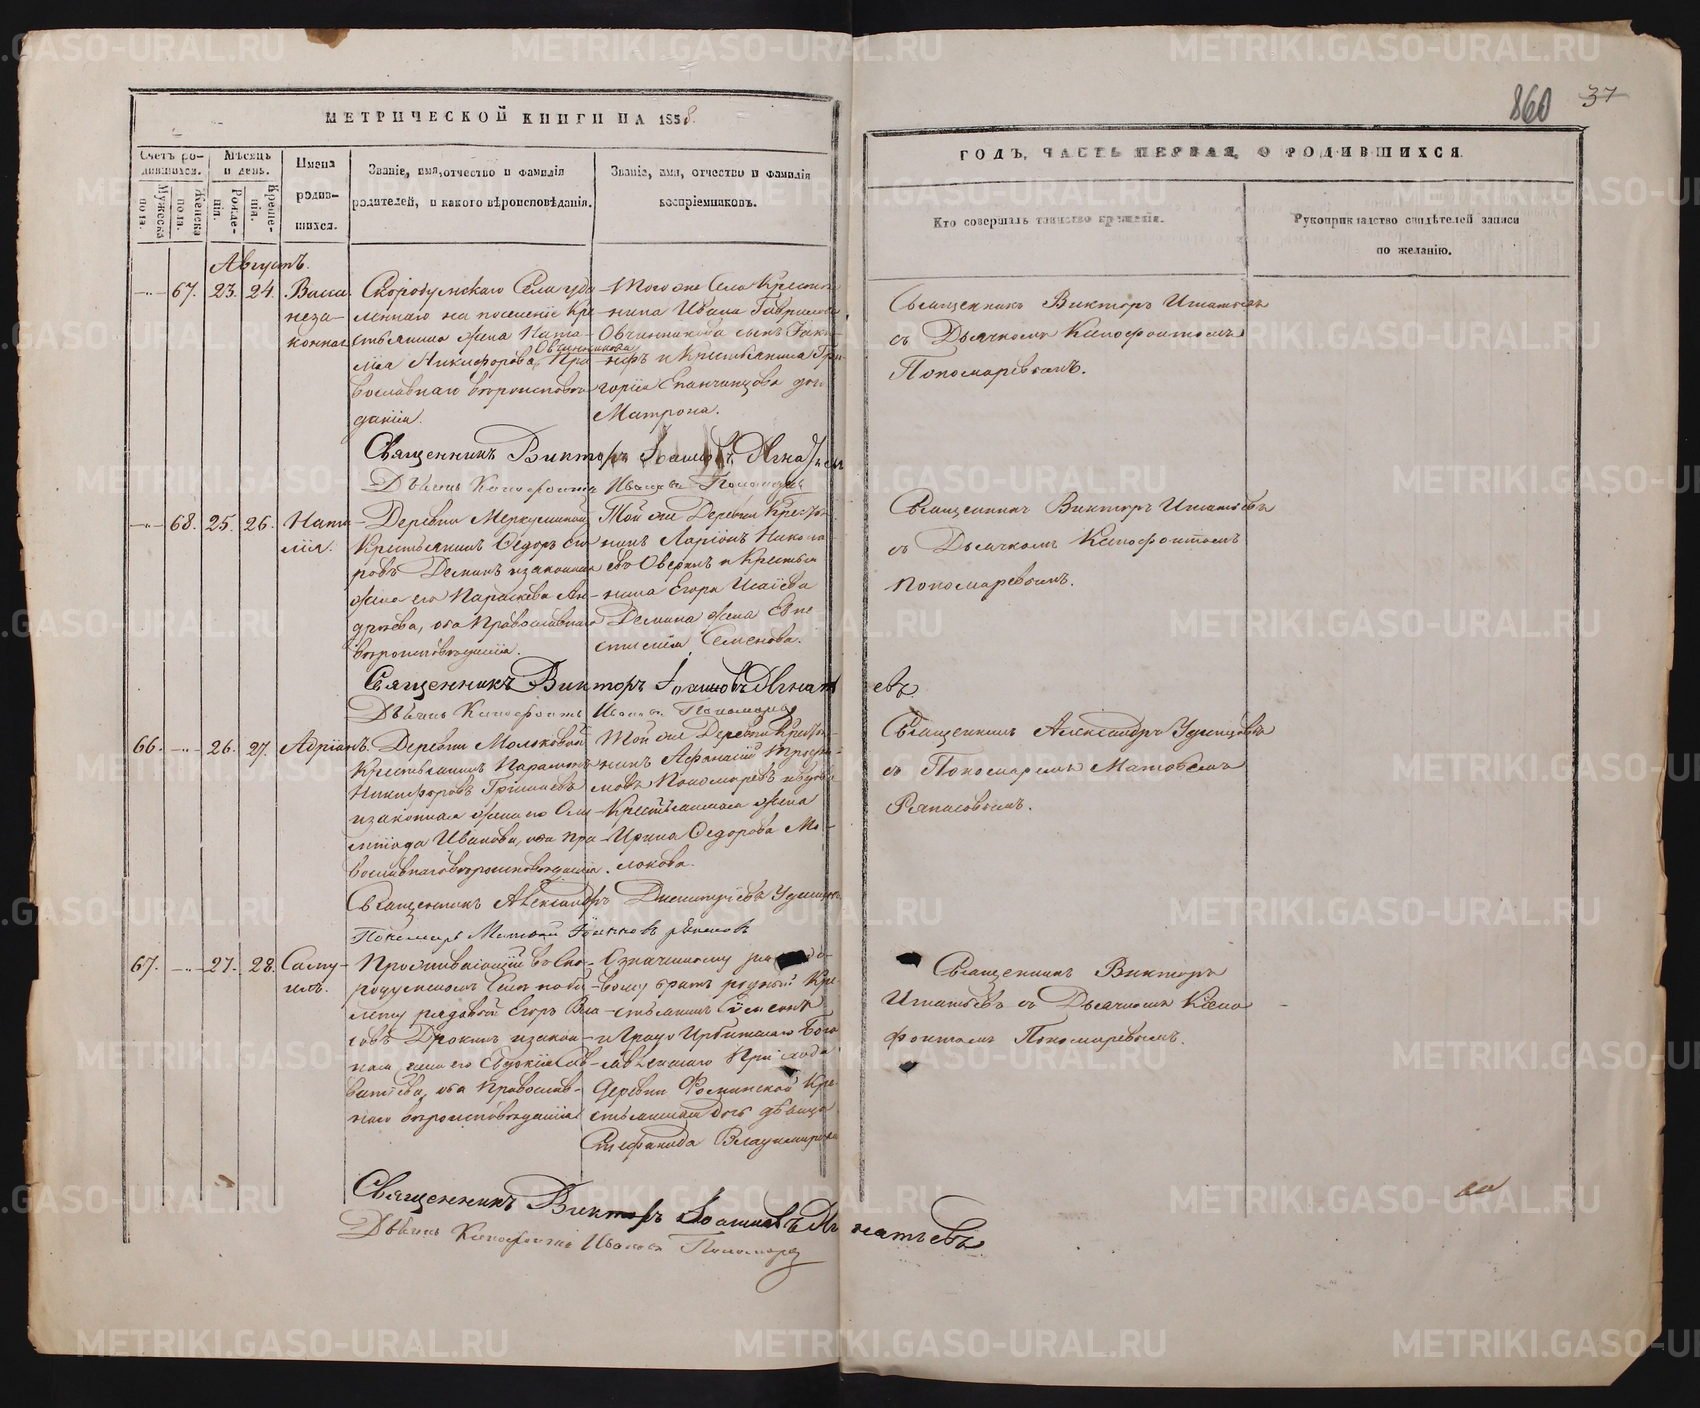 860 37
МЕТРИЧЕСКОЙ КНИГИ НА 1858
ГОДЪ, ЧАСТЬ ПЕРВАЯ, О РОДИВШИХСЯ.
Счетъ ро-
дившихся.
Мужеска
пола.
Женска
пола.
Мѣсяцъ
и день.
Рожде-
нія.
Креще-
нія.
Имена
родив-
шихся.
Званіе, имя, отчество и фамилія
родителей, и какого вѣроисповѣданія.
Званіе, имя, отчество и фамилія
воспріемниковъ.
Кто совершалъ таинство крещенія.
Рукоприкладство свидѣтелей записи
по желанію.
Августъ.
67. 23. 24. Васса
неза-
конная
Скородумскаго Села уда-
леннаго на поселеніе Кре
стьянина жена Ната-
Овчинникова
лія Никифорова, Пра
вославнаго вѣроисповѣ
данія.
Того же Села Крестья
нина Ивана Гаврилова
Овчинникова сынъ
и Крестьянина Гри-
горія Епанчинцова дочь
Матрона.
Священникъ Викторъ Игнатьевъ
съ Дьячкомъ Ксенофонтомъ
Пономаревымъ.
Священникъ Викторъ Іоанновъ Игнатьевъ
Дьячекъ Ксенофонтъ Ивановъ Пономаревъ
68. 25. 26. Ната-
лія.
Деревни Меркушиной
Крестьянинъ Ѳедоръ
ровъ Деминъ и законная
жена его Параскева Ан-
дреева, оба Православнаго
вѣроисповѣданія.
Той же Деревни Кресть
нинъ Ларіонъ Никола
евъ Оверинъ и Крестья
нина Егора Исаіева
Демина жена Евпе
стимія Семенова.
Священникъ Викторъ Игнатьевъ
съ Дьячкомъ Ксенофонтомъ
Пономаревымъ.
Священникъ Викторъ Іоанновъ Игнатьевъ
Дьячекъ Ксенофонтъ Ивановъ Пономаревъ
66. 26. 27. Адріанъ.
Деревни Молоковой
Крестьянинъ Парамонъ
Никифоровъ Гришаевъ
и законная жена его Сли
Иванова, оба Пра
вославнаго вѣроисповѣданія.
Той же Деревни Кресть
нинъ Афанасій Трофи-
мовъ Пономаревъ и вдова
Крестьянская жена
Ирина Ѳедорова Мо-
локова.
Священникъ Александръ Удинцовъ
съ Пономаремъ Матвѣемъ
Ряпасовымъ.
Священникъ Александръ Димитріевъ Удинцовъ
Пономарь Матвей
67. 27. 28. Саму-
илъ.
Проживающій въ Ско-
родумскомъ Селѣ по би-
лету рядовой Егоръ Вла
совъ Дрокинъ и закон-
ная жена его Евдокія Сав-
ватѣева, оба Православ-
наго вѣроисповѣданія
Означенному рядо-
вому братъ родный Кре
стьянинъ Симеонъ
и Града Ирбитскаго Бого
явленскаго Прихода
деревни Фоминской Кре
стьянская дочь дѣвица
Стефанида Владимирова
Священникъ Викторъ
Игнатьевъ съ Дьячкомъ Ксено
фонтомъ Пономаревымъ.
Священникъ Викторъ Іоанновъ Игнатьевъ
Дьячекъ Ксенофонтъ Ивановъ Пономаревъ
METRIKI.GASO-URAL.RU